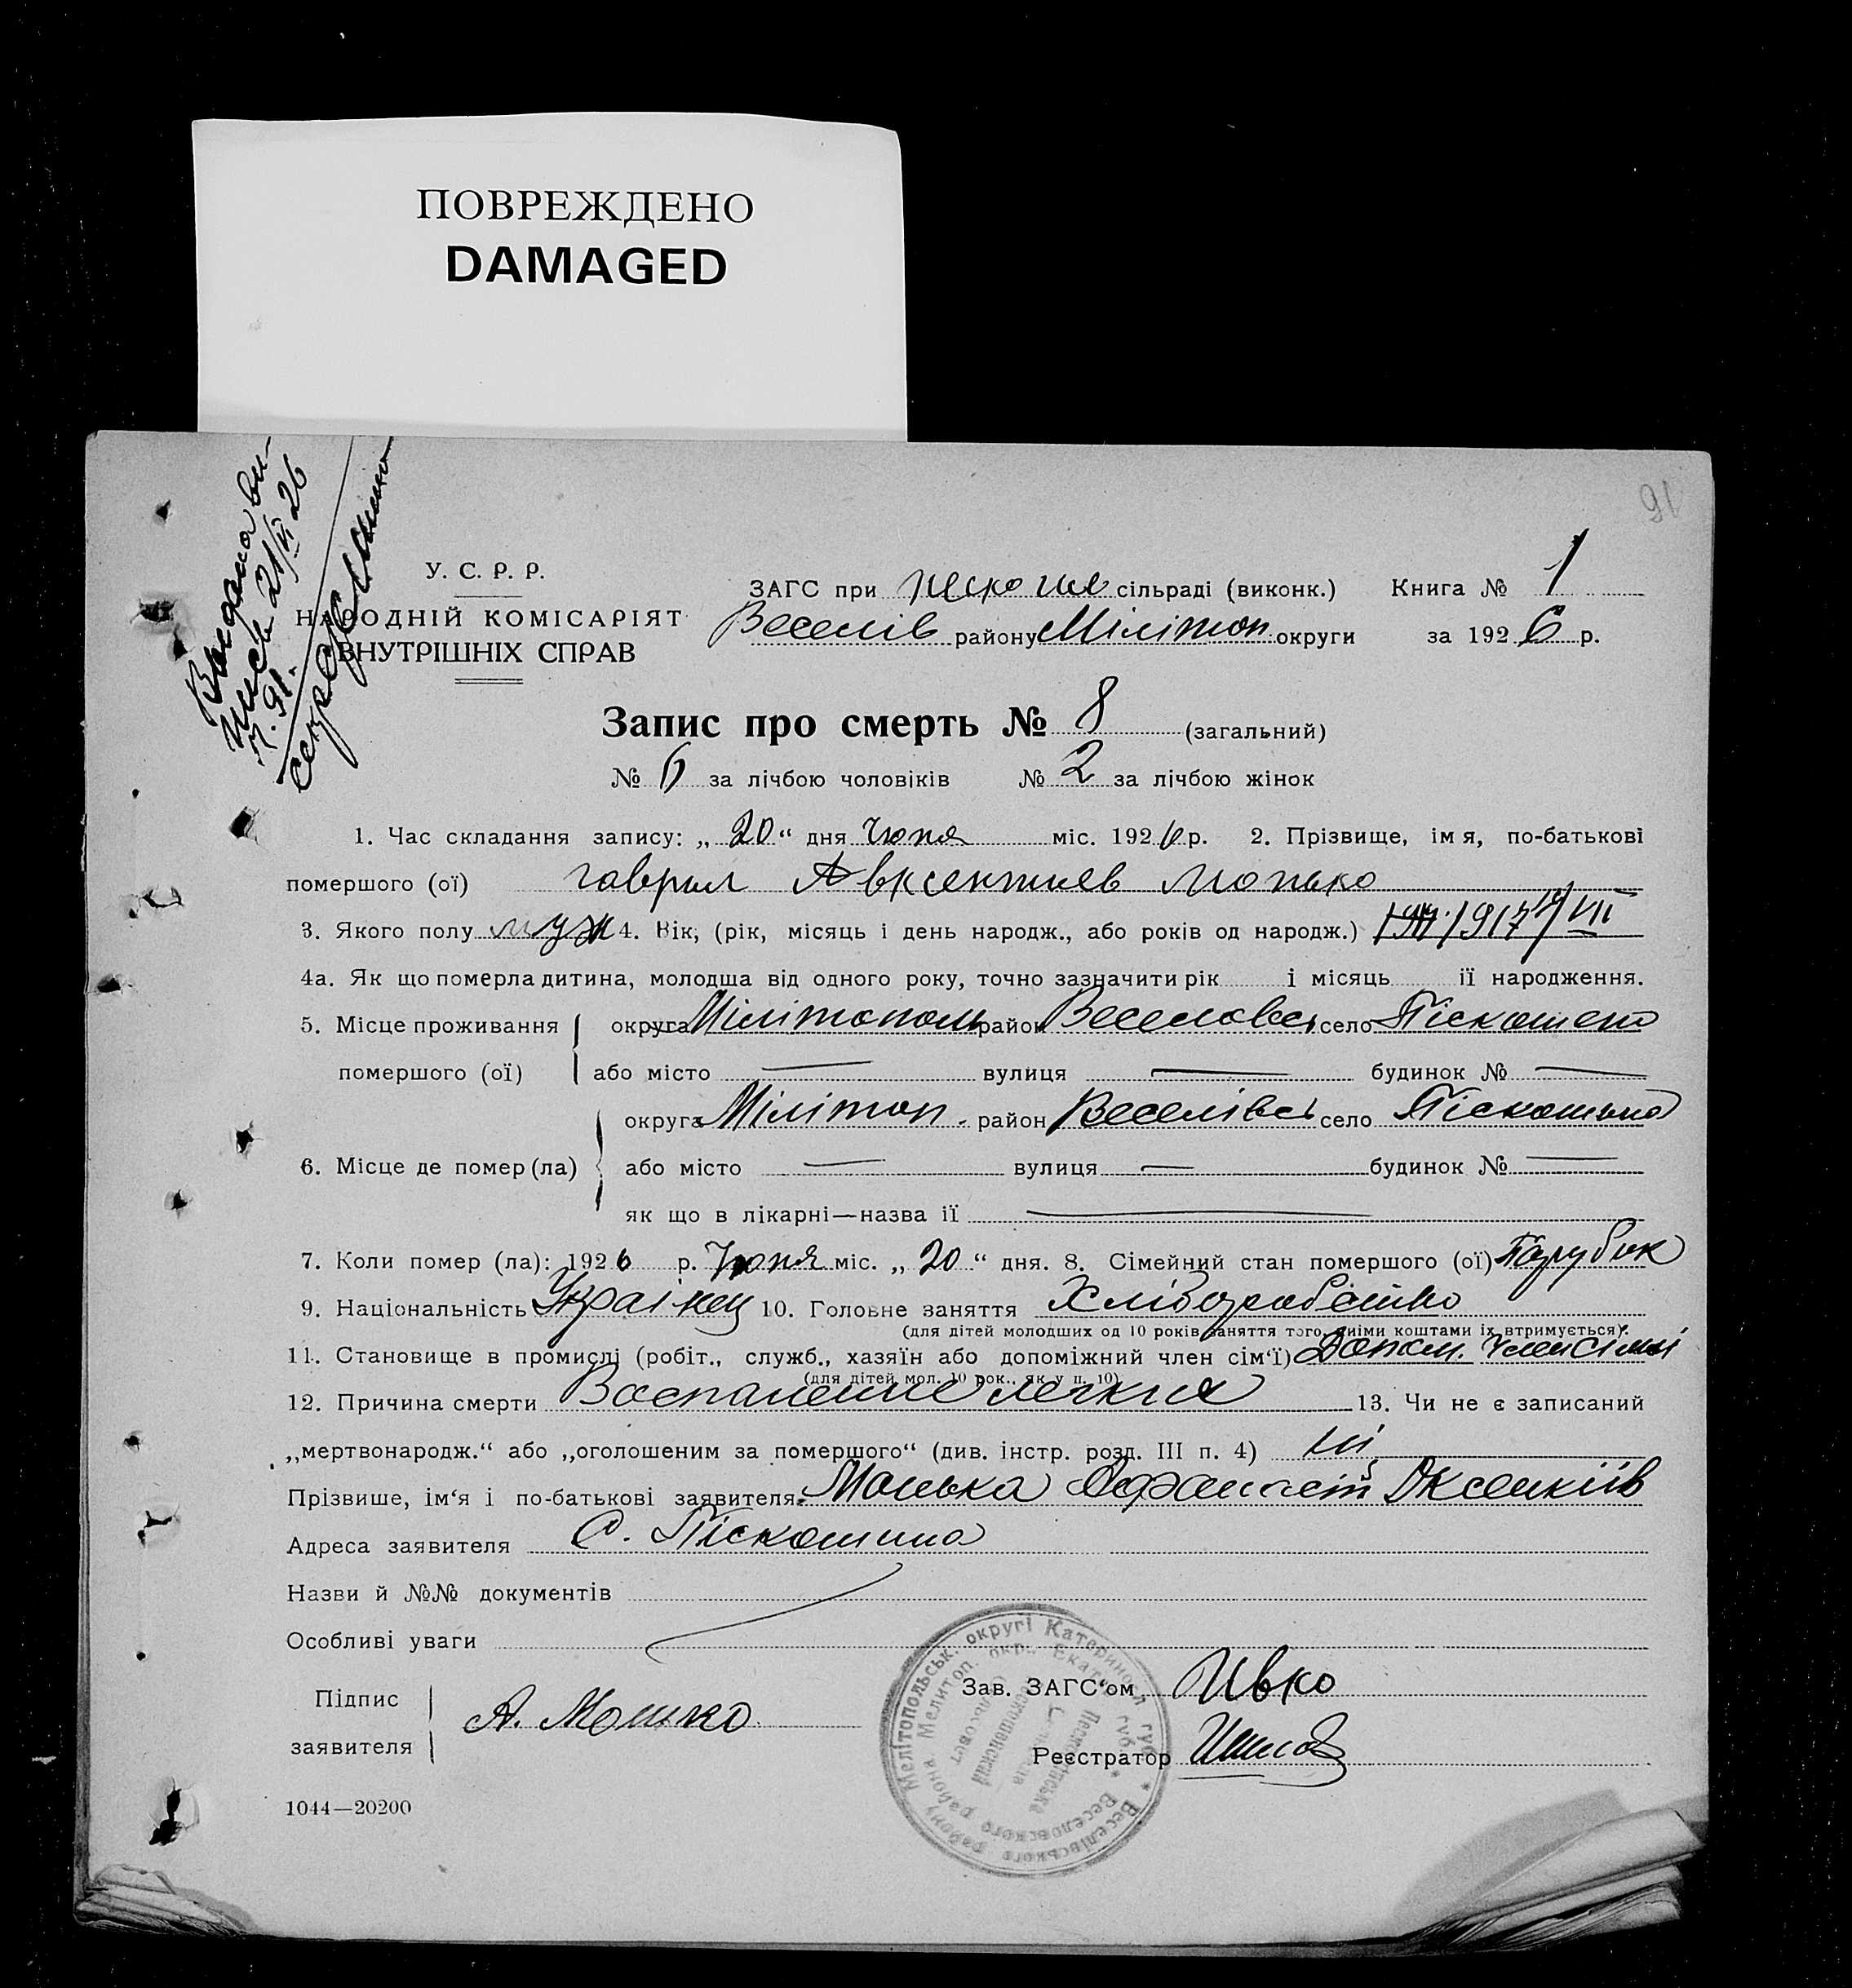 ПОВРЕЖДЕНО
DAMAGED
Видана ви-
пись 21/VI 26
У. С. Р. Р.
НАРОДНІЙ КОМІСАРІЯТ
ВНУТРІШНІХ СПРАВ
ЗАГС при Піскоше сільраді (виконк.) Книга № 1
Веселів району Мілітоп округи за 1926 р.
Запис про смерть № 8 (загальний)
№ 6 за лічбою чоловіків № 2 за лічбою жінок
1. Час складання запису: „20“ дня Июня міс. 1926 р. 2. Прізвище, імя, по-батькові
помершого (ої) Гаврил Авксентиев Монько
3. Якого полу муж 4. Вік, (рік, місяць і день народж., або років од народж.) 1917 /VII
4а. Як що померла дитина, молодша від одного року, точно зазначити рік і місяць її народження.
5. Місце проживання округа Мілітополь район Веселовсь село Піскошено
помершого (ої) або місто — вулиця — будинок № —
округа Мілітоп. район Веселівсь село Піскошино
6. Місце де помер (ла) або місто — вулиця — будинок № —
як що в лікарні—назва її —
7. Коли помер (ла): 1926 р. Июня міс. „20“ дня. 8. Сімейний стан помершого (ої) Парубок
9. Національність Українец 10. Головне заняття Хліборобство
(для дітей молодших од 10 років заняття того, чиїми коштами їх втримується).
11. Становище в промислі (робіт., служб., хазяїн або допоміжний член сім‘ї) Допом. член сімі
(для дітей мол. 10 рок., як у п. 10)
12. Причина смерти Воспаление легких 13. Чи не є записаний
„мертвонародж.“ або „оголошеним за помершого“ (див. інстр. розд. III п. 4) ні
Прізвише, ім‘я і по-батькові заявителя: Монька Оксенкіїв
Адреса заявителя С. Піскошино
Назви й №№ документів
Особливі уваги
Підпис
заявителя А. Монько
Зав. ЗАГС‘ом Ивко
Реєстратор
1044—20200